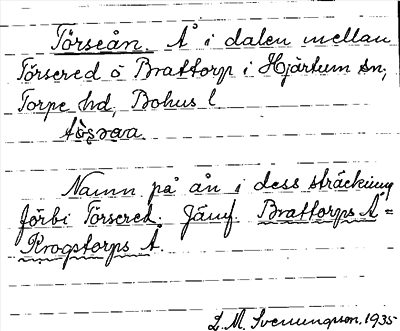 Törseån. Å i dalen mellan
Törsered o Brattorp i Hjärtum sn,
Torpe hd, Bohus l
Namn på ån i dess sträckning
förbi Törsered. Jämf Brattorps Å =
Krogstorps Å.
L. M. Svenungsson. 1935